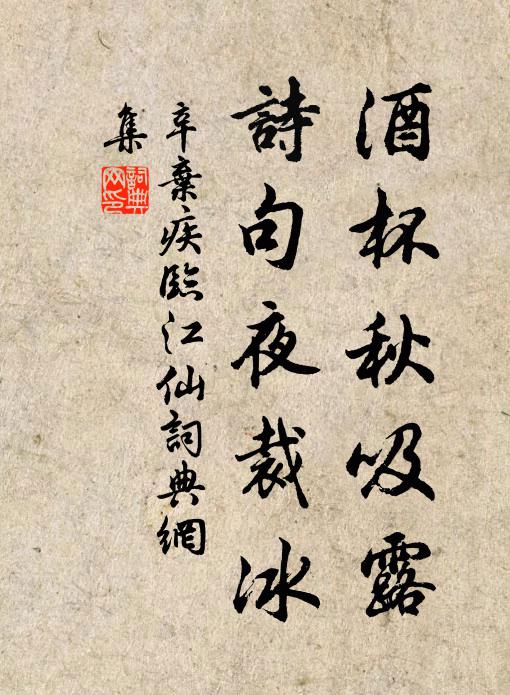 酒杯秋吸露
詩句夜裁冰
辛棄疾臨江仙詞典網
集
詞典網印